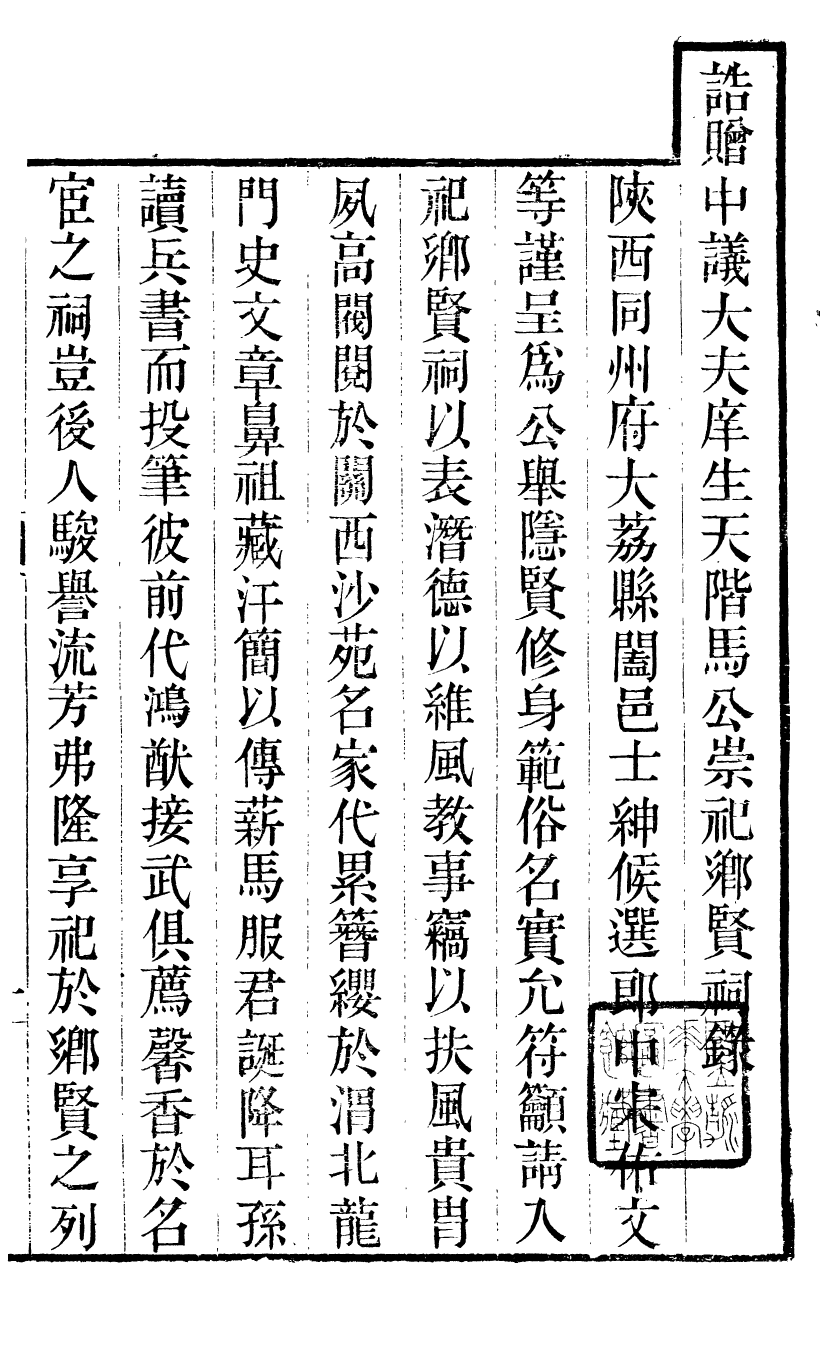 誥贈中議大夫庠生天階馬公崇祀鄉賢祠錄
陝西同州府大荔縣闔邑士紳候選郎中張佑文
等謹呈爲公舉隱賢修身範俗名實允符籲請入
祀鄉賢祠以表潛德以維風教事竊以扶風貴胄
夙高閥閱於關西沙苑名家代累簪纓於渭北龍
門史文章鼻祖藏汗簡以傳薪馬服君誕降耳孫
讀兵書而投筆彼前代鴻猷接武俱薦馨香於名
宦之祠豈後人駿譽流芳弗隆享祀於鄉賢之列